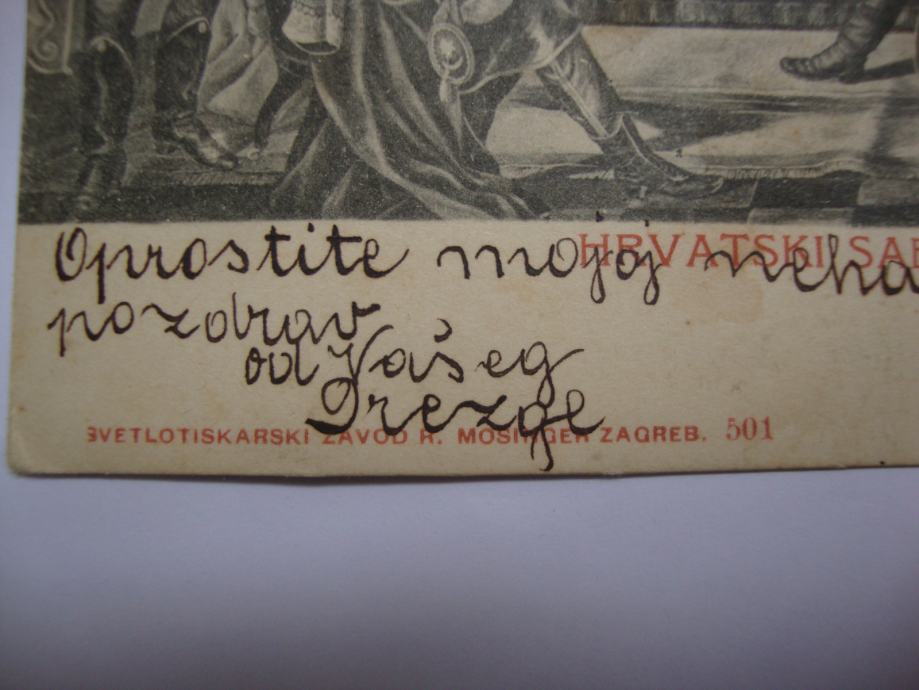 Oprostite mojoj neha
HRVATSKI SAB
pozdrav
od Vašeg
Drezge
SVETLOTISKARSKI ZAVOD R. MOSINGER ZAGREB. 501